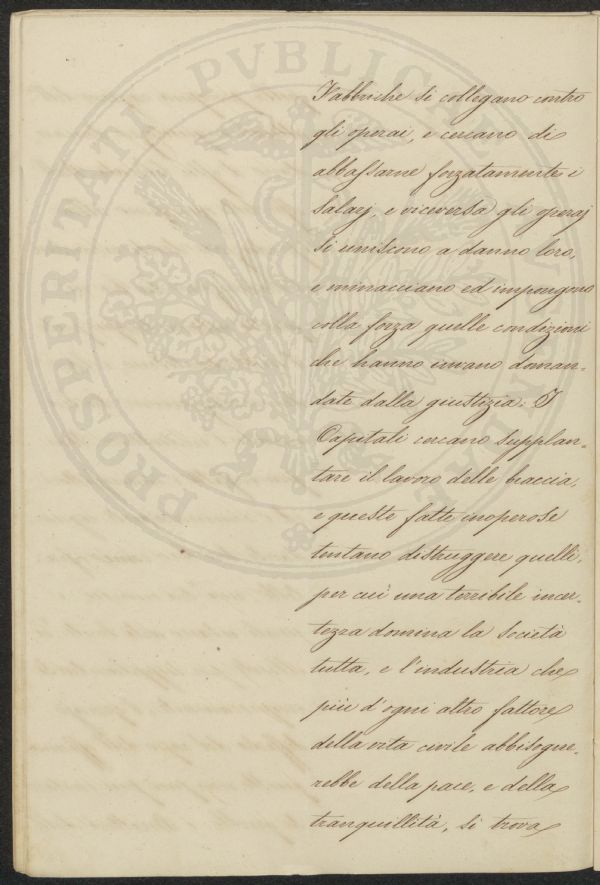 Fabbriche si collegano contro
gli operai, e cercano di
abbassarne forzatamente i
Salarj, e viceversa gli operaj
si uniscono a danno loro,
e minacciano ed impongono
colla forza quelle condizioni
che hanno invano doman-
date dalla giustizia. I
Capitali cercano supplan-
tare il lavoro delle braccia,
e queste fatte inoperose
tentano distruggere quelli,
per cui una terribile incer-
tezza domina la Società
tutta, e l'industria che
più d'ogni altro fattore
della vita civile abbisogne-
rebbe della pace, e della
tranquillità, si trova
PROSPERITATI PVBLICAE